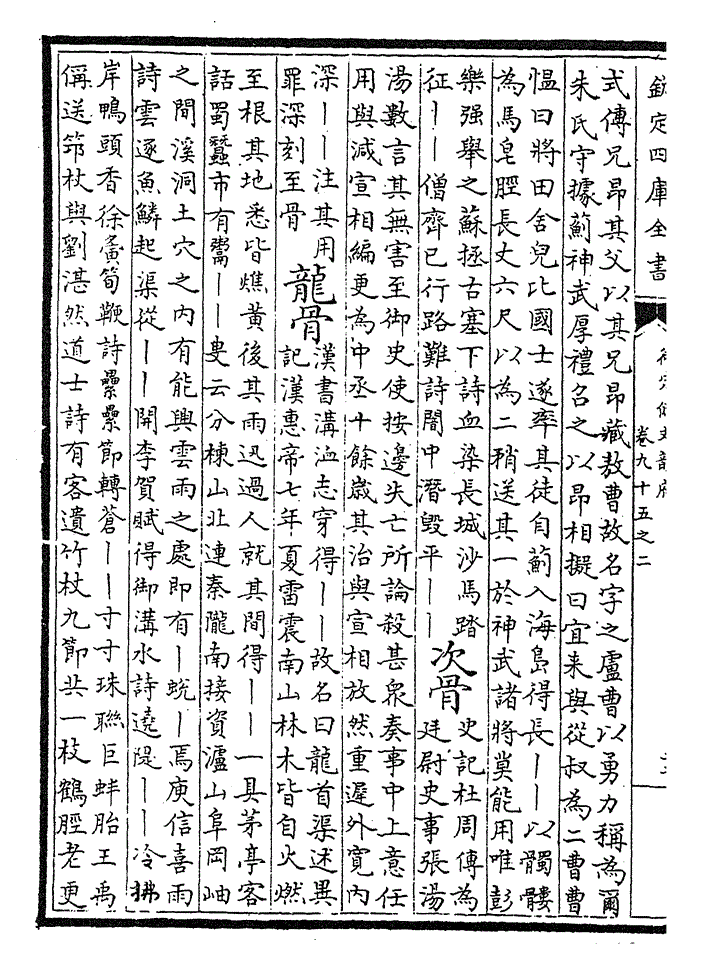 欽定四庫全書
卷九十五之二
式傳兄昂其父以其兄昂藏敖曹故名字之盧曹以勇力稱為爾
朱氏守據薊神武厚禮召之以昂相擬曰宜来與從叔為二曹曹
愠曰將田舍兒比國士遂率其徒自薊入海島得長丨丨以髑髏
為馬皂脛長丈六尺以為二矟送其一於神武諸將莫能用唯彭
樂强舉之蘇拯古塞下詩血染長城沙馬踏
征丨丨僧齊已行路難詩闇中潛毁平丨丨
次骨
史記杜周傳為
廷尉史事張湯
湯數言其無害至御史使按邊失亡所論殺甚衆奏事中上意任
用與減宣相編更為中丞十餘歲其治與宣相放然重遲外寬内
深丨丨注其用
罪深刻至骨
龍骨
漢書溝洫志穿得丨丨故名曰龍首渠述異
記漢惠帝七年夏雷震南山林木皆自火燃
至根其地悉皆燋黄後其雨迅過人就其間得丨丨一具茅亭客
話蜀蠶市有鬻丨丨叟云分棟山北連秦隴南接資瀘山阜岡岫
之間溪洞土穴之内有能興雲雨之處即有丨蛻丨焉庾信喜雨
詩雲逐魚鱗起渠從丨丨開李賀賦得御溝水詩遶隄丨丨冷拂
岸鴨頭香徐夤筍鞭詩纍纍節轉蒼丨丨寸寸珠聯巨蚌胎王禹
偁送筇杖與劉湛然道士詩有客遺竹杖九節共一枝鶴脛老更